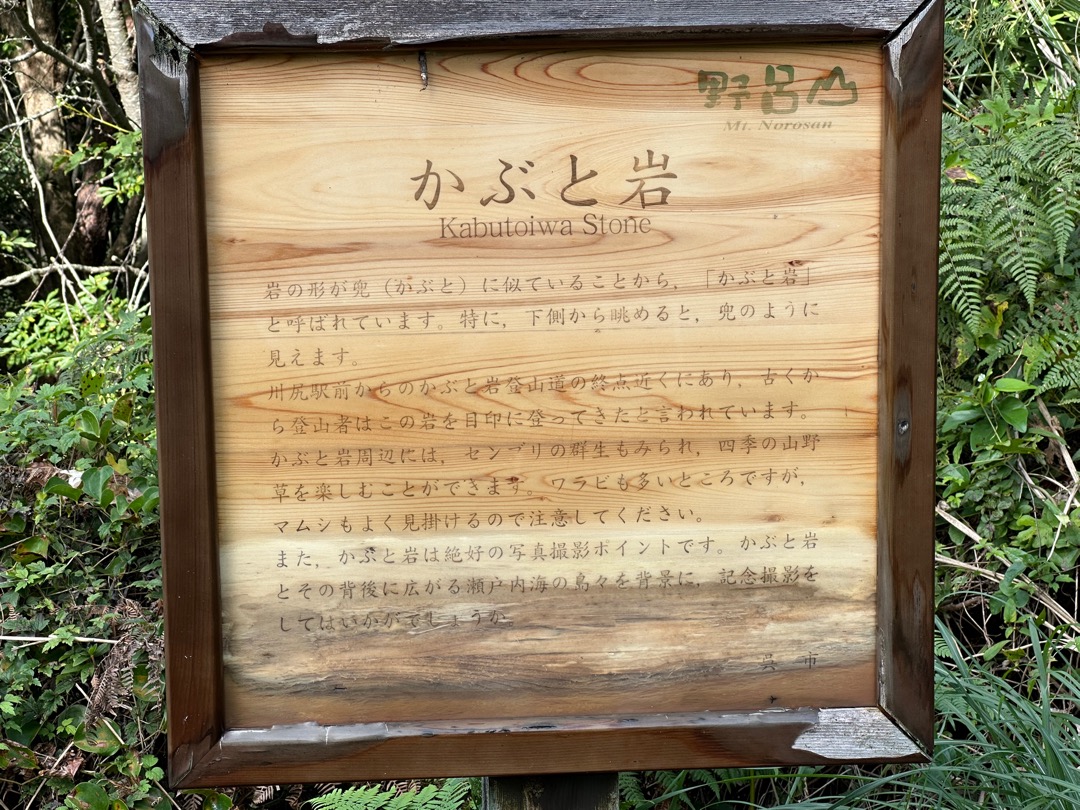 野呂山
Mt. Norosan
かぶと岩
Kabutoiwa Stone
岩の形が兜（かぶと）に似ていることから，「かぶと岩」
と呼ばれています。特に，下側から眺めると，兜のように
見えます。
川尻駅前からのかぶと岩登山道の終点近くにあり，古くか
ら登山者はこの岩を目印に登ってきたと言われています。
かぶと岩周辺には，センブリの群生もみられ，四季の山野
草を楽しむことができます。ワラビも多いところですが，
マムシもよく見掛けるので注意してください。
また，かぶと岩は絶好の写真撮影ポイントです。かぶと岩
とその背後に広がる瀬戸内海の島々を背景に，記念撮影を
してはいかがでしょうか
呉　市